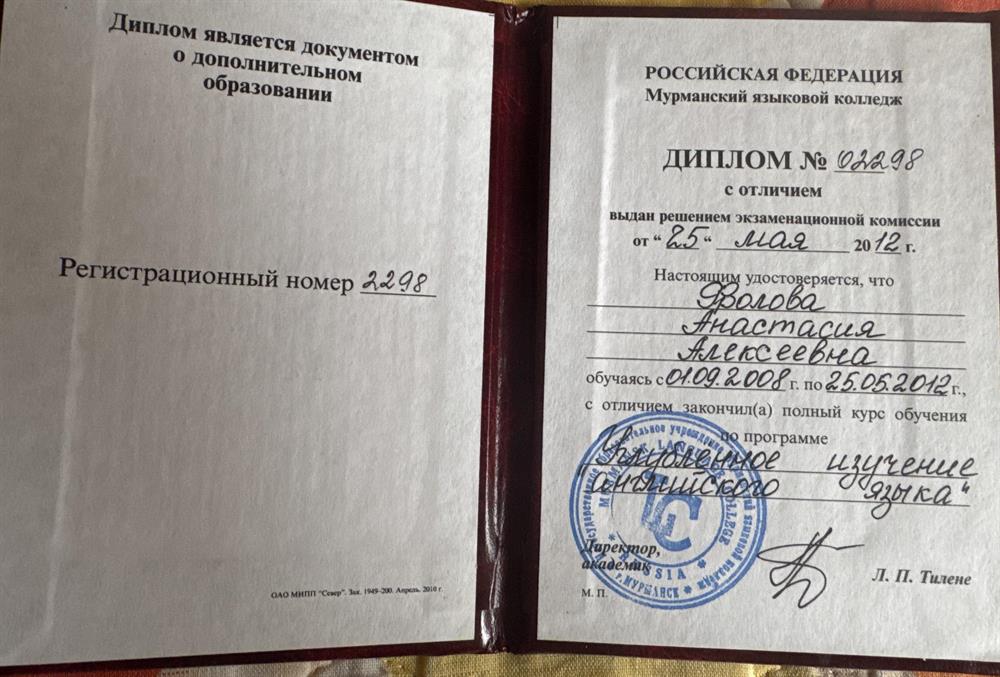 Диплом является документом
о дополнительном
образовании
Регистрационный номер 2298
ОАО МИПП "Север". Зак. 1949–200. Апрель. 2010 г.
РОССИЙСКАЯ ФЕДЕРАЦИЯ
Мурманский языковой колледж
ДИПЛОМ № 02298
с отличием
выдан решением экзаменационной комиссии
от “ 25 “ мая 2012 г.
Настоящим удостоверяется, что
Фролова
Анастасия
Алексеевна
обучаясь с 01.09.2008 г. по 25.05.2012 г.,
с отличием закончил(а) полный курс обучения
по программе
"Углубленное изучение
английского языка"
Директор,
академик
Л. П. Тилене
М. П.
MURMANSK LANGUAGE COLLEGE
* RUSSIA *
г. МУРМАНСК
LC